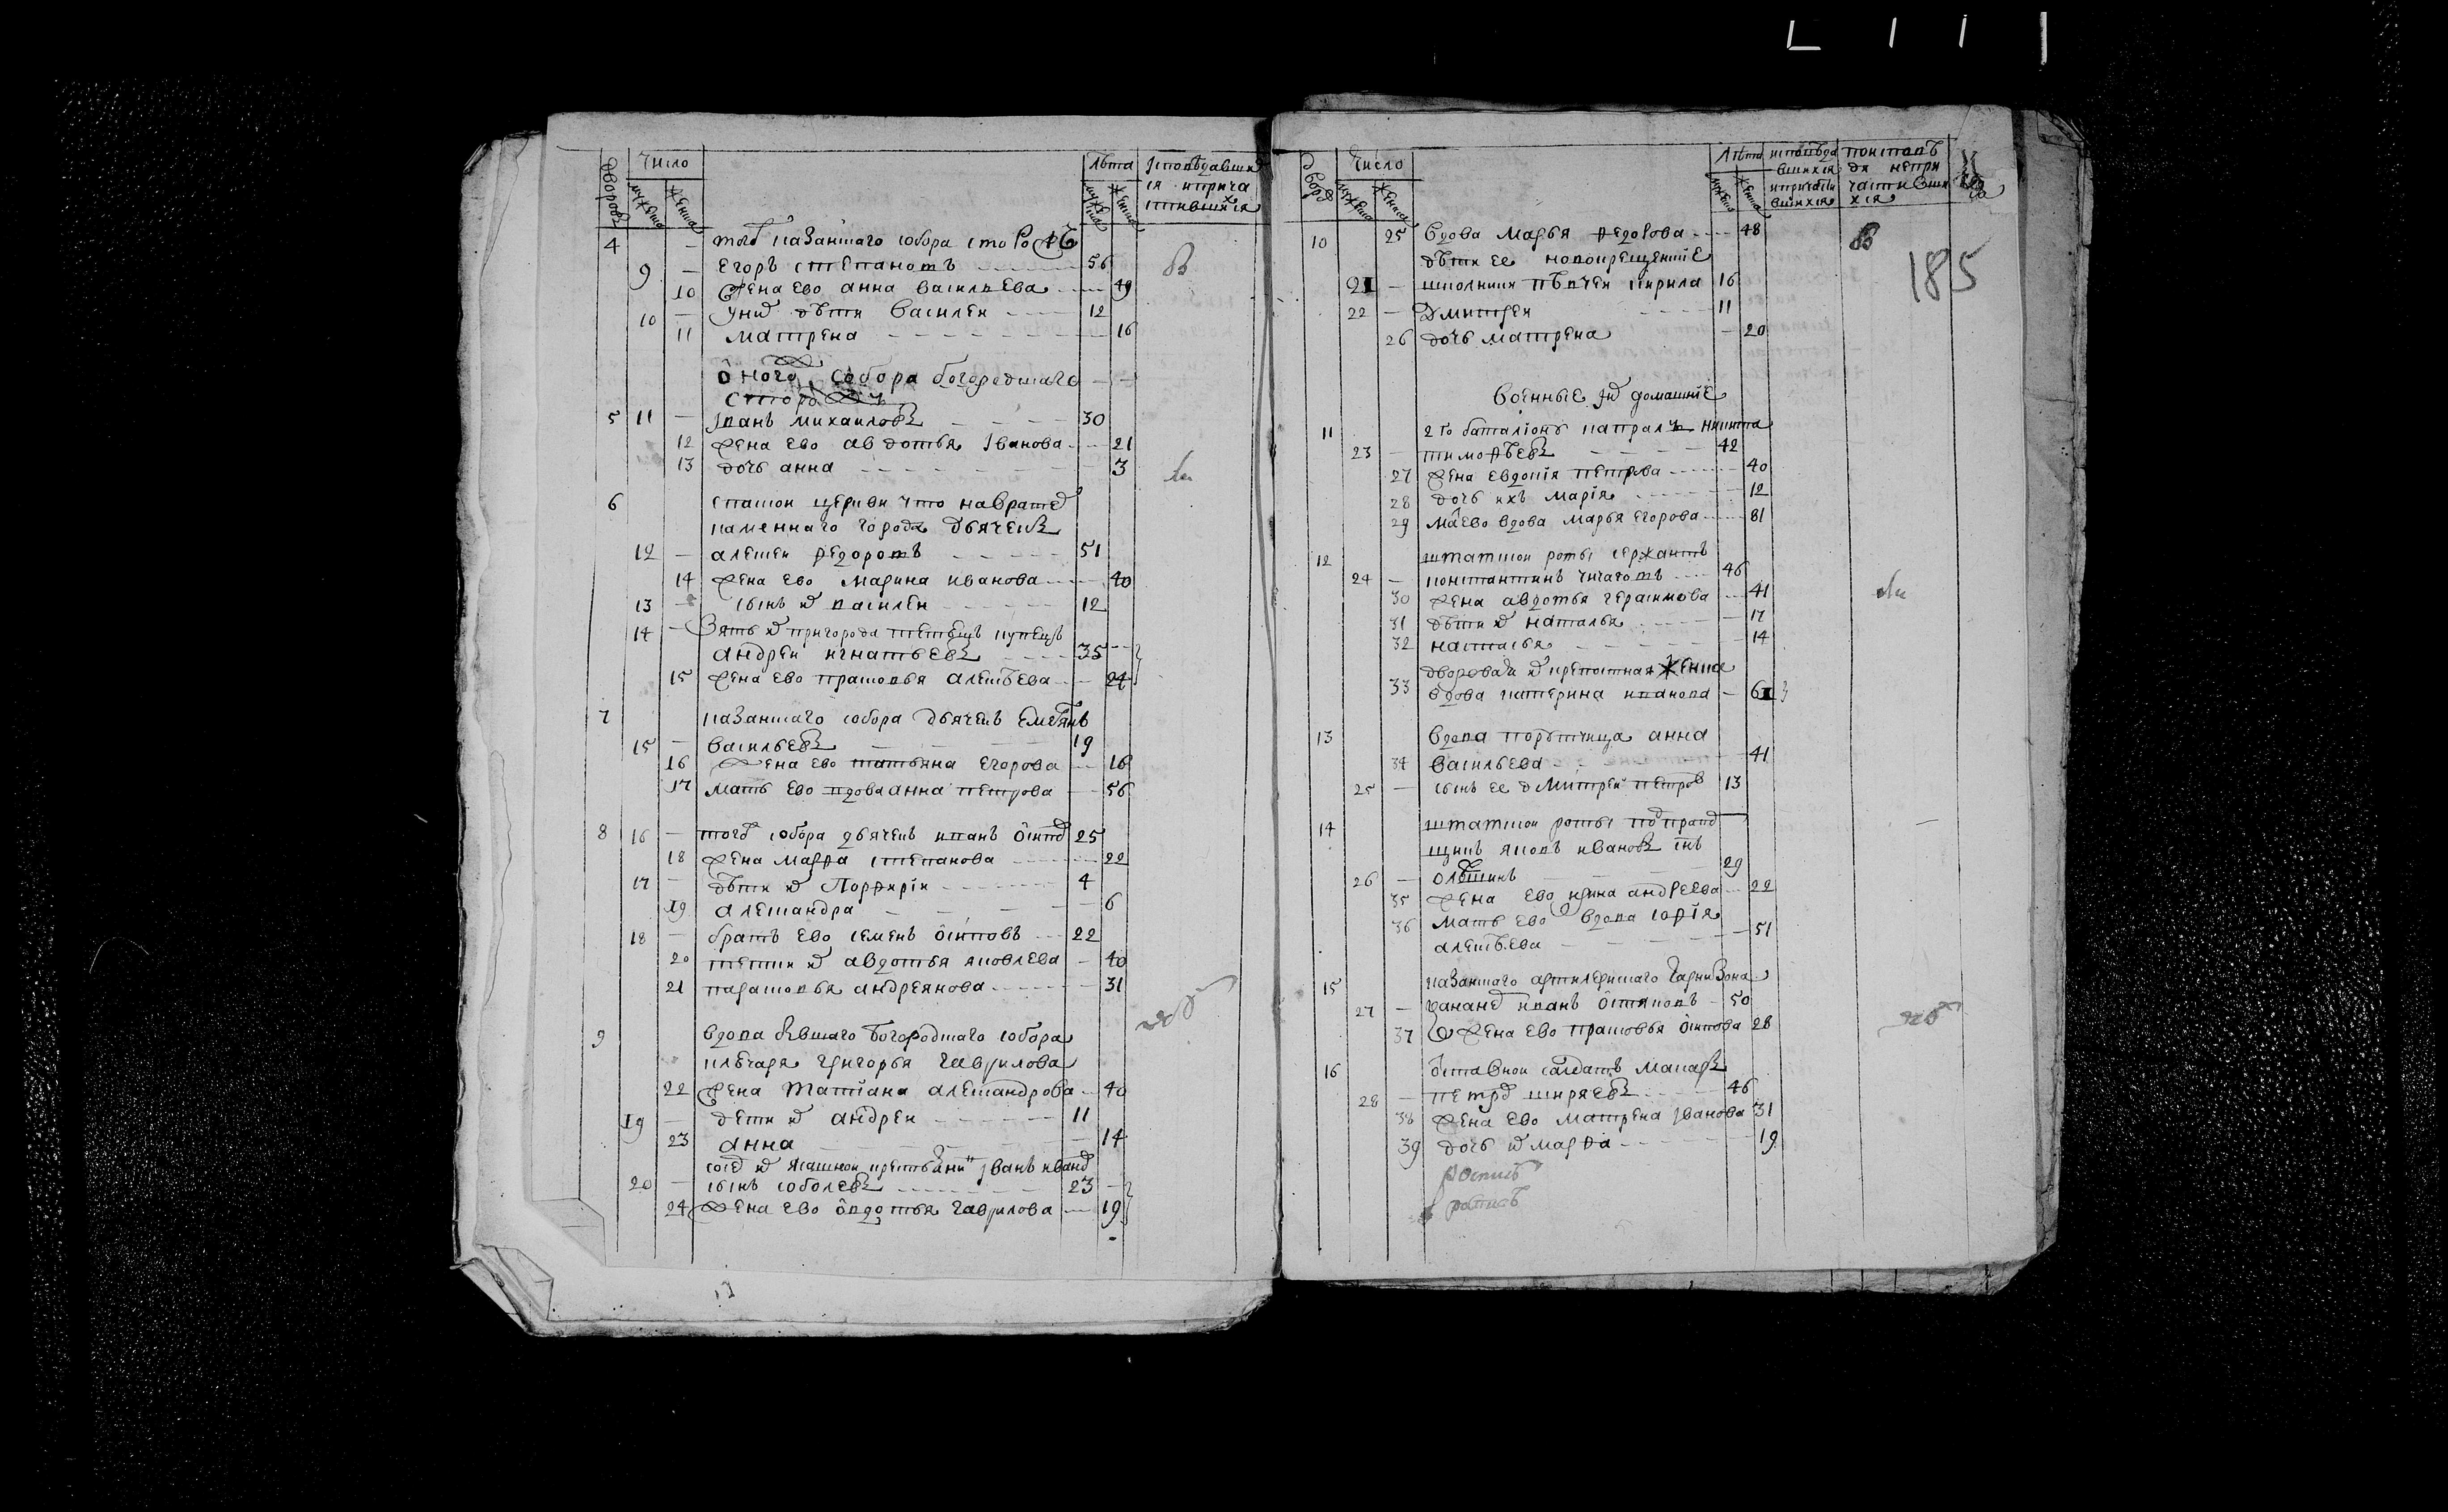 дворовъ Число Лѣта Исповѣдавши
мужеска женска мужеска женска ся и прича
стившияся
4 — того казанскаго собора сторожъ
9 — Егоръ степановъ 56
10 жена ево анна васильева 49
10 — у них дѣти василеи 12
11 матрена 16
оного собора богородцкаго
сторожъ
5 11 — Іванъ михаиловъ 30
12 жена ево авдотья Іванова 21
13 дочь анна 3
6 спаской церкви что на вратех
каменнаго города дьячекъ
12 — алексеи федоровъ 51
14 жена ево марина иванова 40
13 — сынъ их василеи 12
14 — Зять их пригорода тетюшъ купецъ
андреи игнатьевъ 35
15 жена ево прасковья алексѣева 24
7 казанскаго собора дьячекъ Емельянъ
15 — васильевъ 19
16 жена ево татьяна Егорова 18
17 мать ево вдова анна петрова 56
8 16 — того собора дьячекъ иванъ осипов 25
18 жена марфа степанова 22
17 — дѣти их Порфирiи 4
19 александра 6
18 — братъ ево семенъ осиповъ 22
20 тетки их авдотья яковлева 40
21 парасковья андреянова 31
9 вдова бывшаго богородцкаго собора
ключаря григорья гаврилова
22 жена татiана александрова 40
19 — дети их андреи 11
23 анна 14
сосед их ясашнои крестьянинъ Iванъ иванов
20 — сынъ соболевъ 23
24 жена ево овдотья гаврилова 19
дворов Число Лѣта исповѣда по исповѣ
мужеска женска мужеска женска вшихся ди непри
и причасти частивши
вшихся хся
185
10 25 вдова марья федорова 48
дѣти ее новокрещенные
21 — школники пѣвчеи кирила 16
22 — Дмитреи 11
26 дочь матрена 20
военные их домашнiе
11 2 го баталiону капралъ никита
23 — тимофѣевъ 42
27 жена евдокiя петрова 40
28 дочь ихъ марiя 12
29 мать ево вдова марья егорова 81
12 штатской роты сержантъ
24 — константинъ чигаговъ 46
30 жена авдотья герасимова 41
31 дѣти их наталья 17
32 настасья 14
дворовая их крепостная женка
33 вдова катерина иванова 61
13 вдова порутчица анна
34 васильева 41
25 — сынъ ее дмитреи петров 13
14 штатской роты подпрапо
щикъ яковъ ивановъ снъ
26 — олѣшинъ 29
35 жена ево ирина андреева 22
36 мать ево вдова софiя
алексѣева 51
15 казанскаго артилерискаго гарнизона
27 — кананер иванъ остяковъ 50
37 жена ево прасковья осипова 28
16 отставнои салдатъ макаръ
28 — петров ширяевъ 46
38 жена ево матрена Iванова 31
39 дочь их марфа 19
роспись
роспись